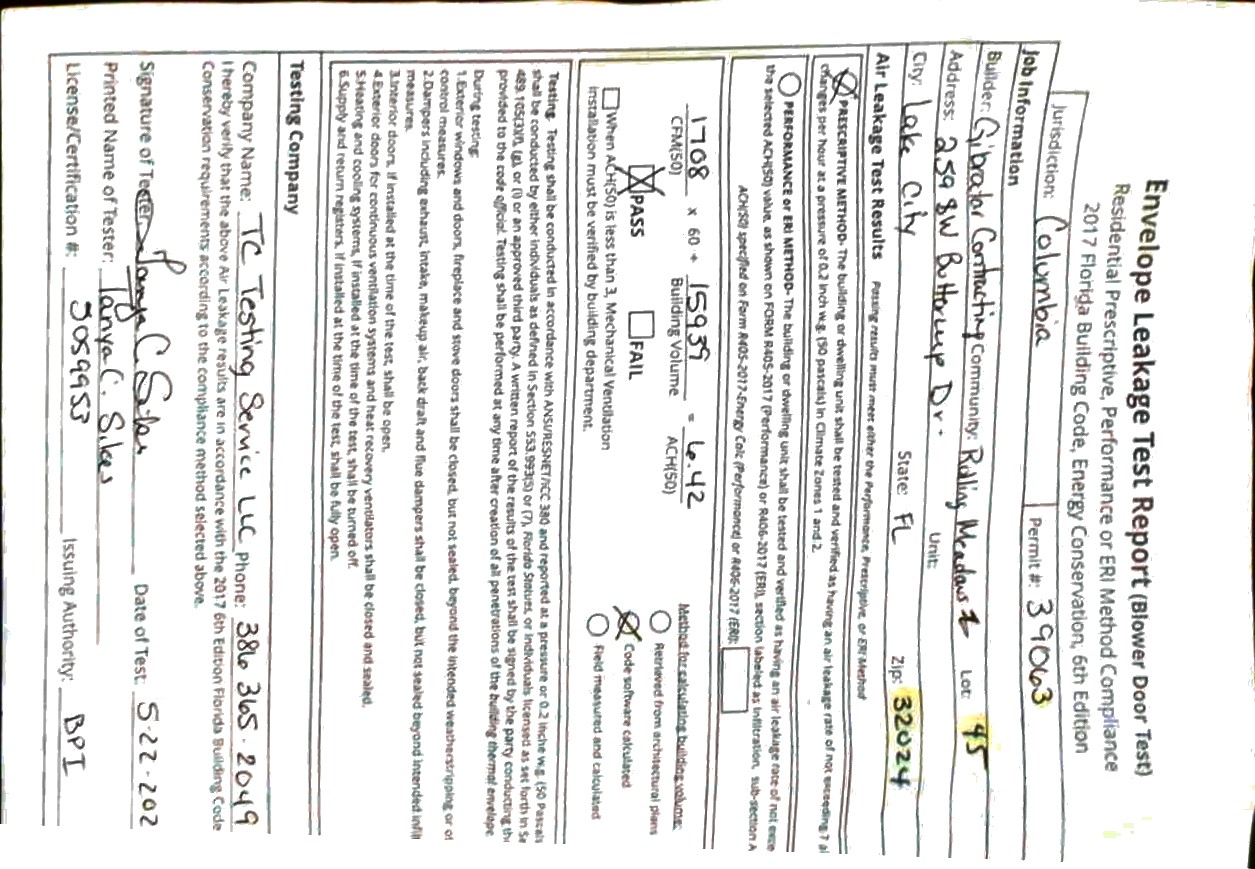 Envelope Leakage Test Report (Blower Door Test)
Residential Prescriptive, Performance or ERI Method Compliance
2017 Florida Building Code, Energy Conservation, 6th Edition
Jurisdiction: Columbia Permit #: 39063
Job Information
Builder: Gibratar Contracting Community: Rolling Meadows Lot: 45
Address: 259 SW Buttercup Dr. Unit:
City: Lake City State: FL Zip: 32024
Air Leakage Test Results Passing results must meet either the Performance, Prescriptive, or ERI Method
PRESCRIPTIVE METHOD- The building or dwelling unit shall be tested and verified as having an air leakage rate of not exceeding 7 ai
changes per hour at a pressure of 0.2 inch w.g. (50 pascals) in Climate Zones 1 and 2.
PERFORMANCE or ERI METHOD- The building or dwelling unit shall be tested and verified as having an air leakage rate of not exce
the selected ACH(50) value, as shown on FORM R405-2017 (Performance) or R406-2017 (ERI), section labeled as infiltration, sub-section A
ACH(50) specified on Form R405-2017-Energy Calc (Performance) or R406-2017 (ERI):
1708 x 60 ÷ 15939 = 6.42
CFM(50) Building Volume ACH(50)
PASS FAIL
When ACH(50) is less than 3, Mechanical Ventilation
installation must be verified by building department.
Method for calculating building volume:
Retrieved from architectural plans
Code software calculated
Field measured and calculated
Testing. Testing shall be conducted in accordance with ANSI/RESNET/ICC 380 and reported at a pressure or 0.2 inche w.g. (50 Pascals
shall be conducted by either individuals as defined in Section 553.993(5) or (7), Florida Statues, or individuals licensed as set forth in Se
489.105(3)(f), (g), or (i) or an approved third party. A written report of the results of the test shall be signed by the party conducting the
provided to the code official. Testing shall be performed at any time after creation of all penetrations of the building thermal envelope
During testing:
1.Exterior windows and doors, fireplace and stove doors shall be closed, but not sealed, beyond the intended weatherstripping or ot
control measures.
2.Dampers including exhaust, intake, makeup air, back draft and flue dampers shall be closed, but not sealed beyond intended infilt
measures.
3.Interior doors, if installed at the time of the test, shall be open.
4.Exterior doors for continuous ventilation systems and heat recovery ventilators shall be closed and sealed.
5.Heating and cooling systems, if installed at the time of the test, shall be turned off.
6.Supply and return registers, if installed at the time of the test, shall be fully open.
Testing Company
Company Name: TC Testing Service LLC Phone: 386 365-2049
I hereby verify that the above Air Leakage results are in accordance with the 2017 6th Edition Florida Building Code
Conservation requirements according to the compliance method selected above.
Signature of Tester: Tanya C Sikes Date of Test: 5-22-202
Printed Name of Tester: Tanya C. Sikes
License/Certification #: 5059953 Issuing Authority: BPI